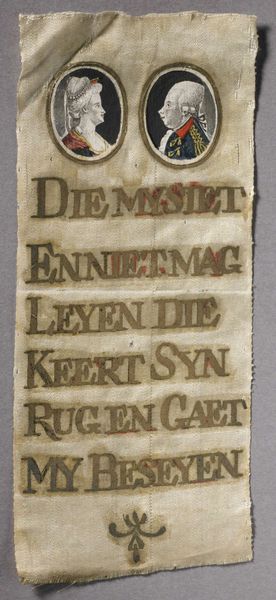 DIE MY SIET
EN NIET MAG
LEYEN DIE
KEERT SYN
RUG EN GAET
MY BESEYEN